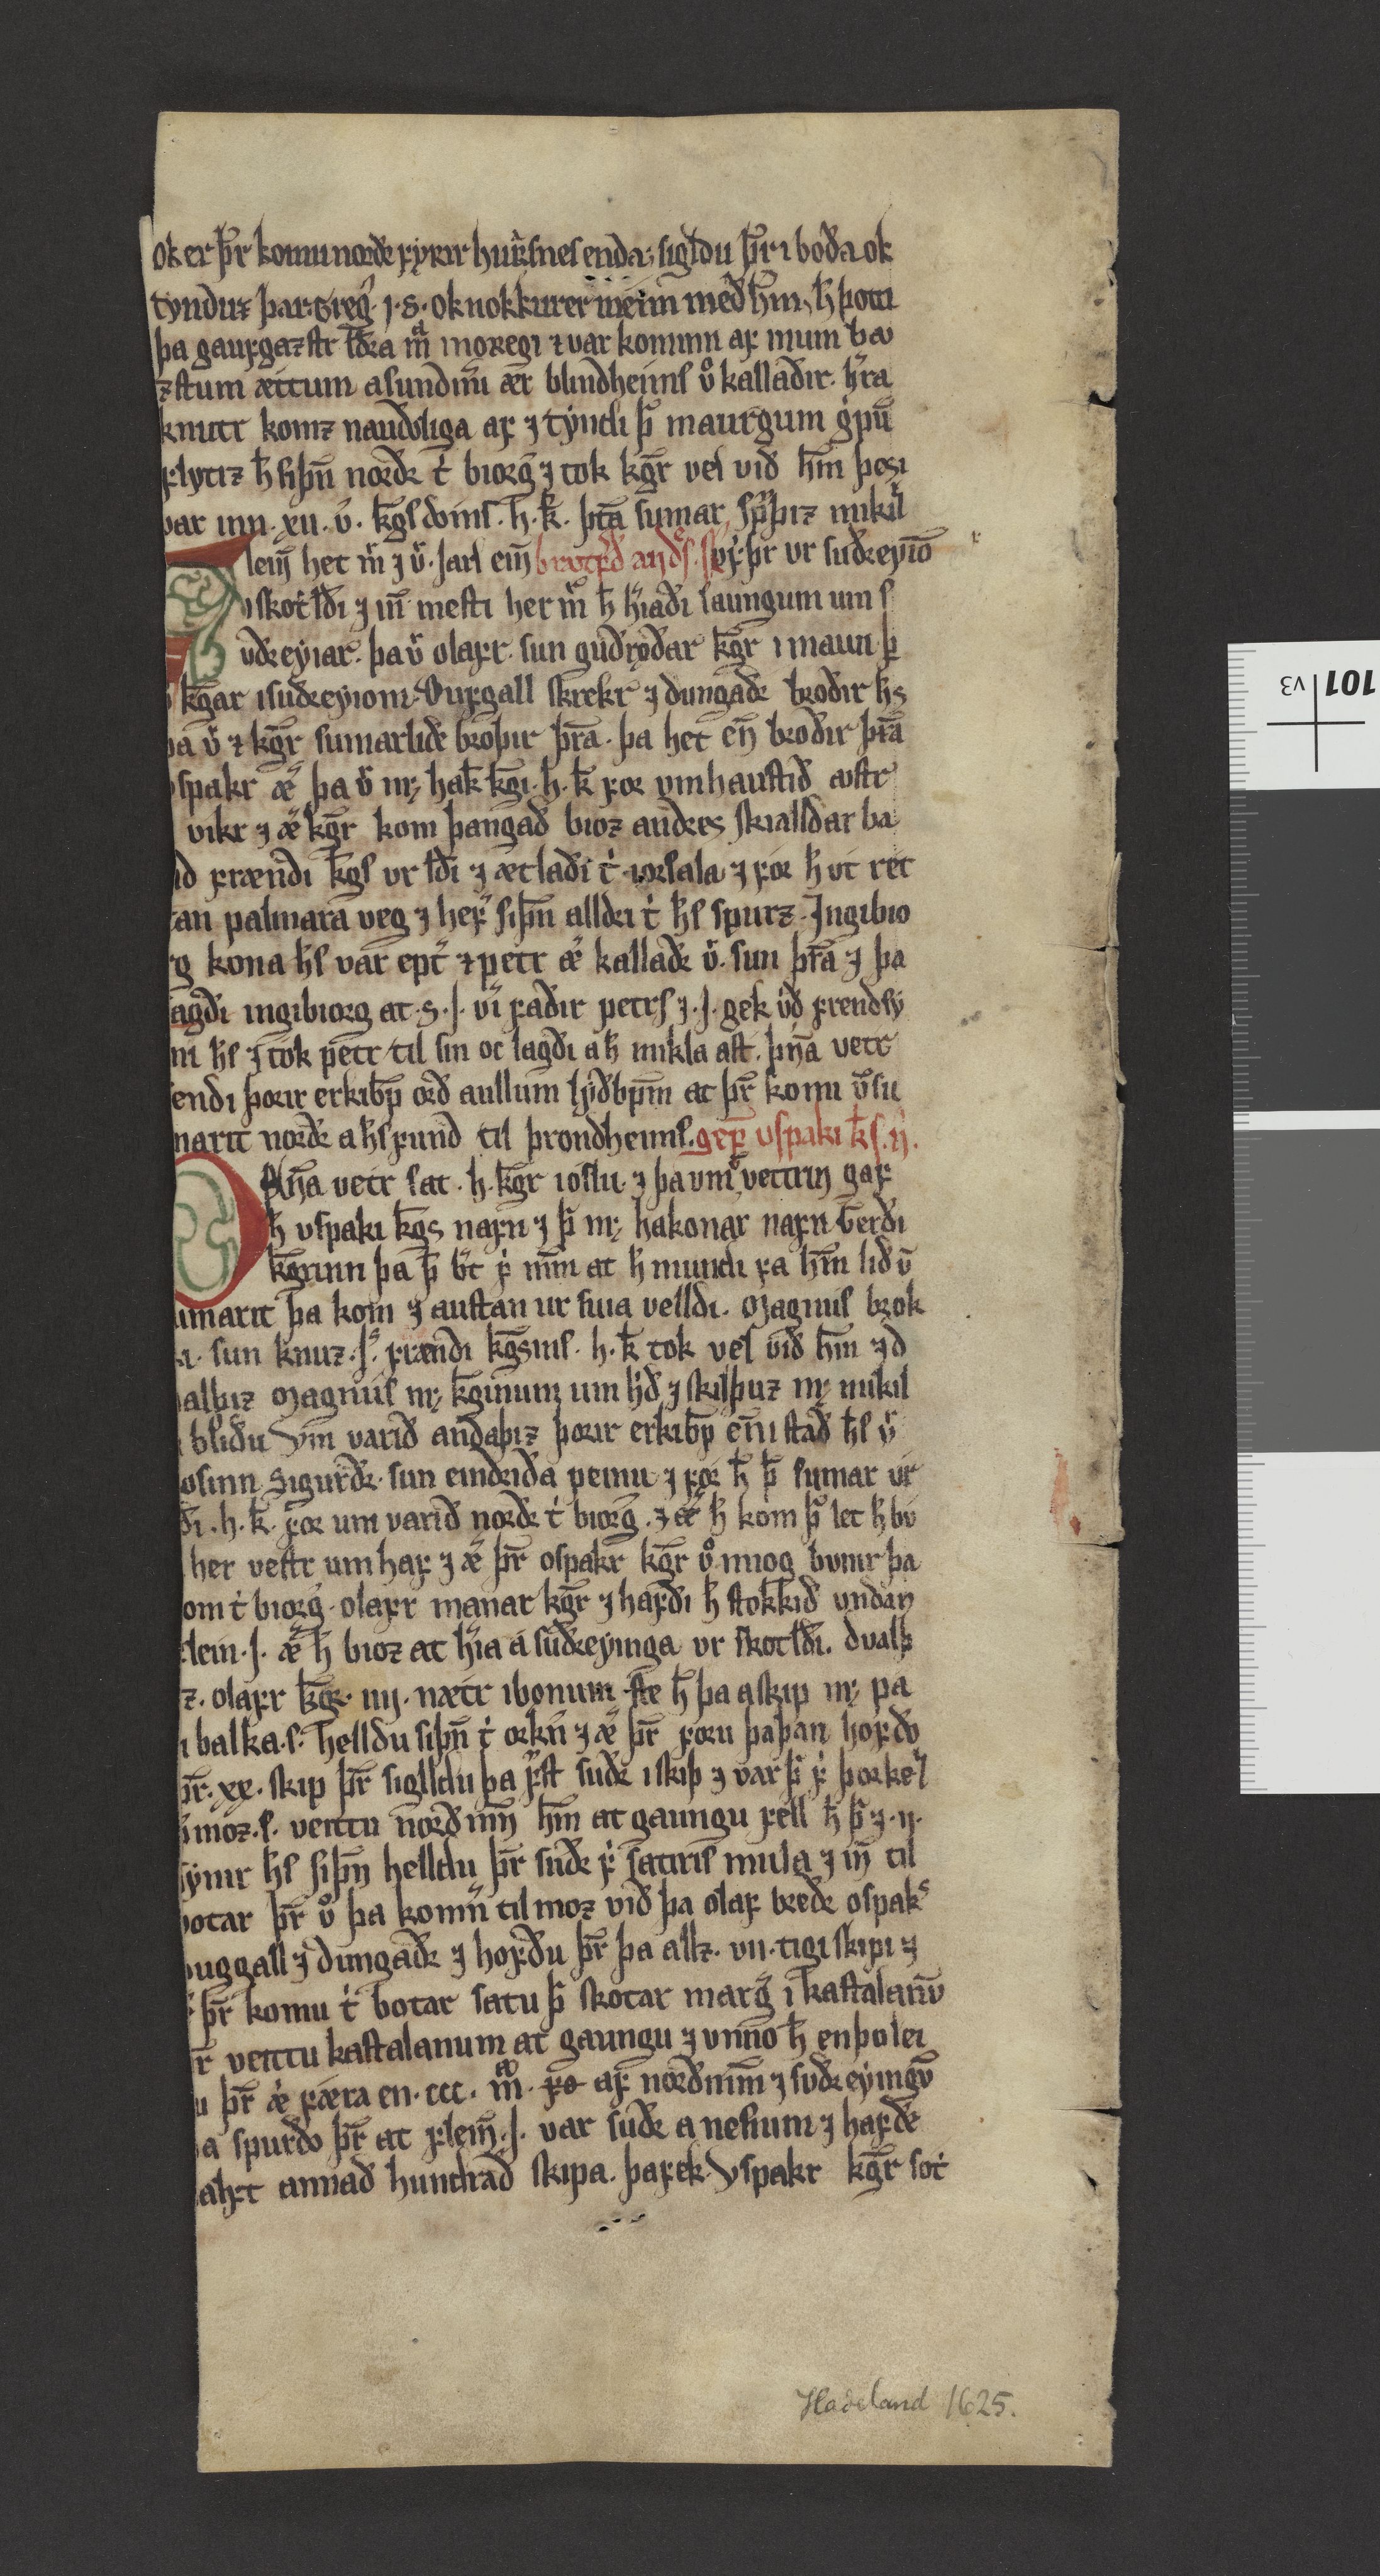 ok er þ̅r komu norðr fyrir hufsnes enda sigldu þ̅r i boða ok
tynduz þar. Greg̅. J. s. ok nokkurer menn með hm̅. h̅ þotti
þa gaufgaztr lðra m̅ i noregi ⁊ var kominn af mum ba
ztum ættum a sundmǿri ær blindheims v̊ kallaðir. h̅ra
knutr komz nauðoliga af ⁊ tyndi þ̅ maurgum gripū
flytiz h̅ siþn̅ norðr t̍ biorg̅ ⁊ tok kg̅r vel við hm̅ þesi
var inn. xii. v̍. kg̅s doms. h. k̅. þr̅a sumar spurþiz mikil
lem̅ het m̅ ⁊ v̍. Jarl ein̅ brotferð anders. sk ofr̍þr vr suðreyiō
skotlði ⁊ in̅ mesti her m̅ h̅ h̍iaði laungum um s
vðreyiar. þa v̍ olafr. sun guðrøðar kg̅r i maun þ̅
kg̅ar i suðreyiom. Dufgall skrekr ⁊ dungaðr broðir h̅s
þa v̍ ⁊ kg̅r sumarliðr broþir þr̅a. þa het en̅ broðir þr̅a
ospakr æ̍ þa v̍ m; hak̅ kg̅i. h. k̅ for vm haustið austr
vikr ⁊ æ̍ kg̅r kom þangað bioz anders skialldar ba
nd frændi kg̅s vr lði ⁊ ætlaði t̍ iorsala ⁊ for h̅ vt ret
tan palmara veg ⁊ hef̍ siþn̅ alldri t̍ h̅s spurz. Ingibio
rg kona h̅s var ept̍ ⁊ petr æ̍ kallaðr v̍. sun þr̅a ⁊ þa
sagði ingibiorg at. S. J. v̍i faðir petrs ⁊. J. gek við frendsy
mi h̅s ⁊ tok petr til sin oc lagði a h̅ mikla ast. þn̅a vetr
sendi þorir erkib̅p orð aullum lyðbp̅m at þr̅ komi v̅ su
marit norðr a h̅s fund til þrondheims. gef̅ vspaki k̅s. n.
Þn̅a vetr sat. h. kg̅r i oslu. ⁊ þa vm vettrin gaf
h̅ vspaki kg̅s nafn ⁊ þ̅ m; hakonar nafn Gerði
kg̅rinn þa þ̅ b̍t f̍ mm̅ at h̅ mundi fa hm̅ lið v̅
sumarit þa kom ⁊ austan ur suia velldi. Magnus brok
ki. sun knuz. J. frændi kg̅sins. h. k̅ tok vel við hm̅ ⁊ d
ualþiz Magnus m; kg̅inum um h̍ð ⁊ skilþuz m; mikil
li bliðu Vm varið andaþiz þorir erkib̅p en̅ i stað h̅s v̍
kosinn Sigurðr. sun eindriða peinu ⁊ for h̅ þ̅ sumar vr
lði. h. k̅. for um varið norðr t̍ biorg̅. ⁊ æ̍ h̅ kom þ̊ let h̅ bu
her vestr um haf ⁊ æ̍ þr̅ ospakr kg̅r v̊ miog bvnir þa
kom t̍ biorg̅. olafr manar kg̅r ⁊ hafði h̅ stokkið undan
flem. J. æ̍ h̅ bioz at h̍ia a suðreyinga vr skotlði. dvalþ
iz. olafr kg̅r. iiij. nætr i bonum ste h̅ þa a skip m; pa
li balka. s. Helldu siþn̅ t̍ orkn̅ ⁊ æ̍ þr̅ foru þaþan hofðu
þr̅. xx. skip þr̅ siglldu þa f̍st suðr i skiþ ⁊ var þ̅ f̍ þorkel
þ̅moz. s. veittu norðmn̅ hm̅ at gaungu fell h̅ þ̅ ⁊. ij.
synir h̅s siþn̅ helldu þr̅ suðr f̍ satiris mula ⁊ in̅ til
botar þr̅ v̊ þa komn̍ til moz við þa olaf brǿðr ospaks
duggall ⁊ dungaðr ⁊ hofðu þr̅ þa allz. vii. tigi skipi ⁊
æ̍ þr̅ komu t̍ botar satu þ̅ skotar marg̅ i kastalanū
þr̅ veittu kastalanum at gaungu ⁊ vnno h̅ en þo let
u þr̅ æ̍ fæira en. ccc. m̅. fo af norðmm̅ ⁊ suðreyingū
þa spurðo þr̅ at flem̅. J. var suðr a nesium ⁊ hafðe
alft annað hundrað skipa. þa fek. Vspakr kg̅r sot
Hadeland 1625.
101 v3